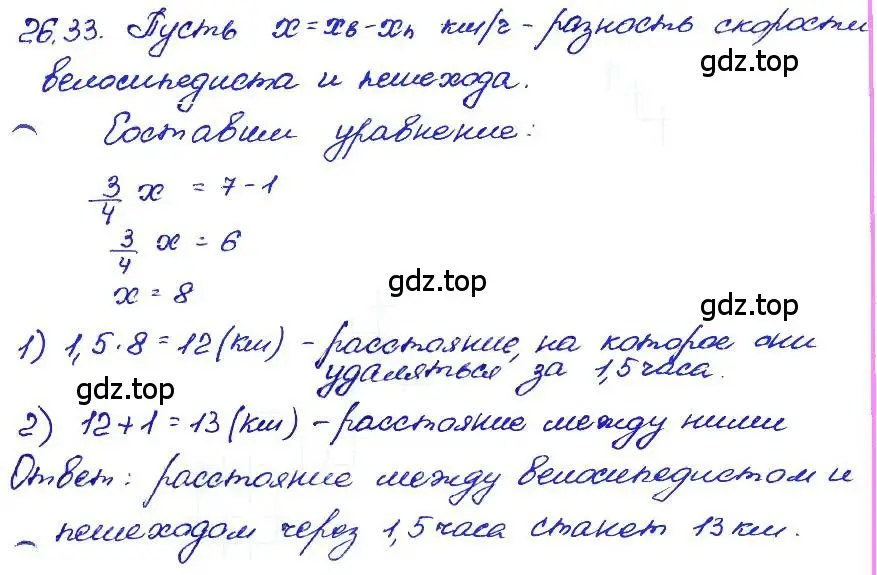 26.33. Пусть x = xв - xп км/ч - разность скорости
gdz.top
велосипедиста и пешехода.
Составим уравнение:
3/4 x = 7 - 1
3/4 x = 6
gdz.top
x = 8
gdz.top
1) 1,5 · 8 = 12 (км) - расстояние, на которое они
удаляться за 1,5 часа.
gdz.top
2) 12 + 1 = 13 (км) - расстояние между ними
Ответ: расстояние между велосипедистом и
пешеходом через 1,5 часа станет 13 км.
gdz.top